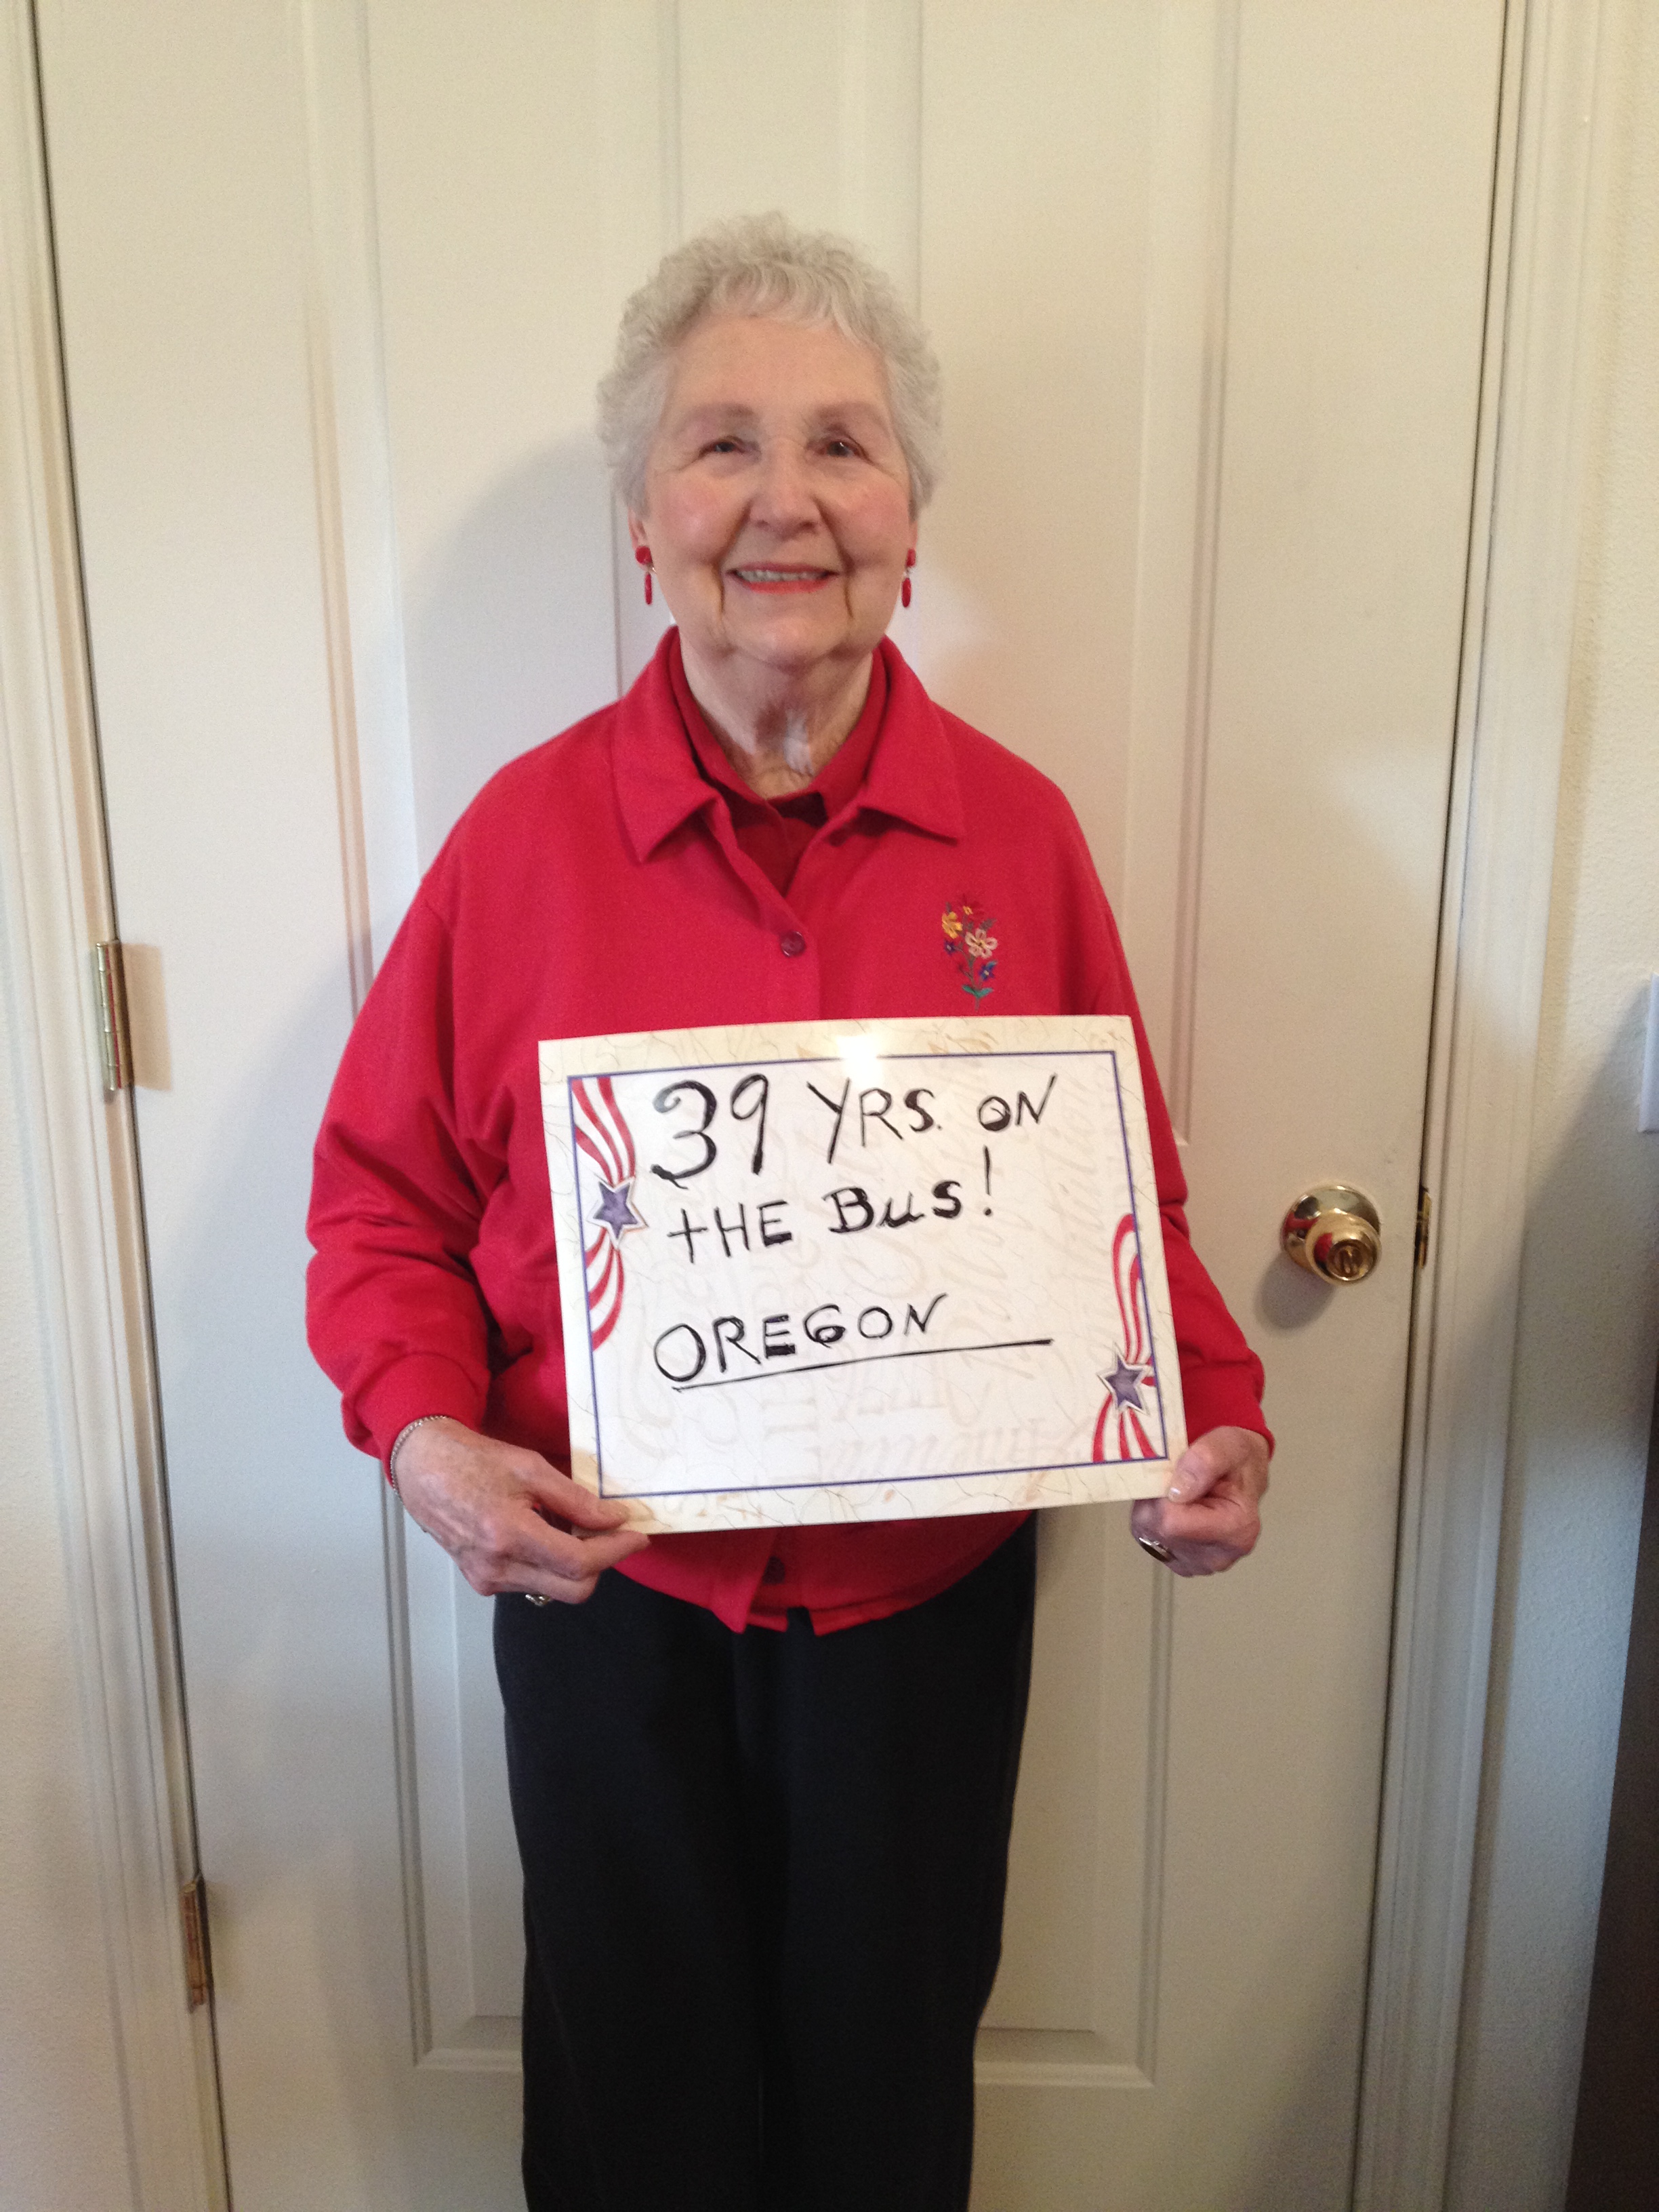 39 YRS. ON
tHE BuS!
OREGON